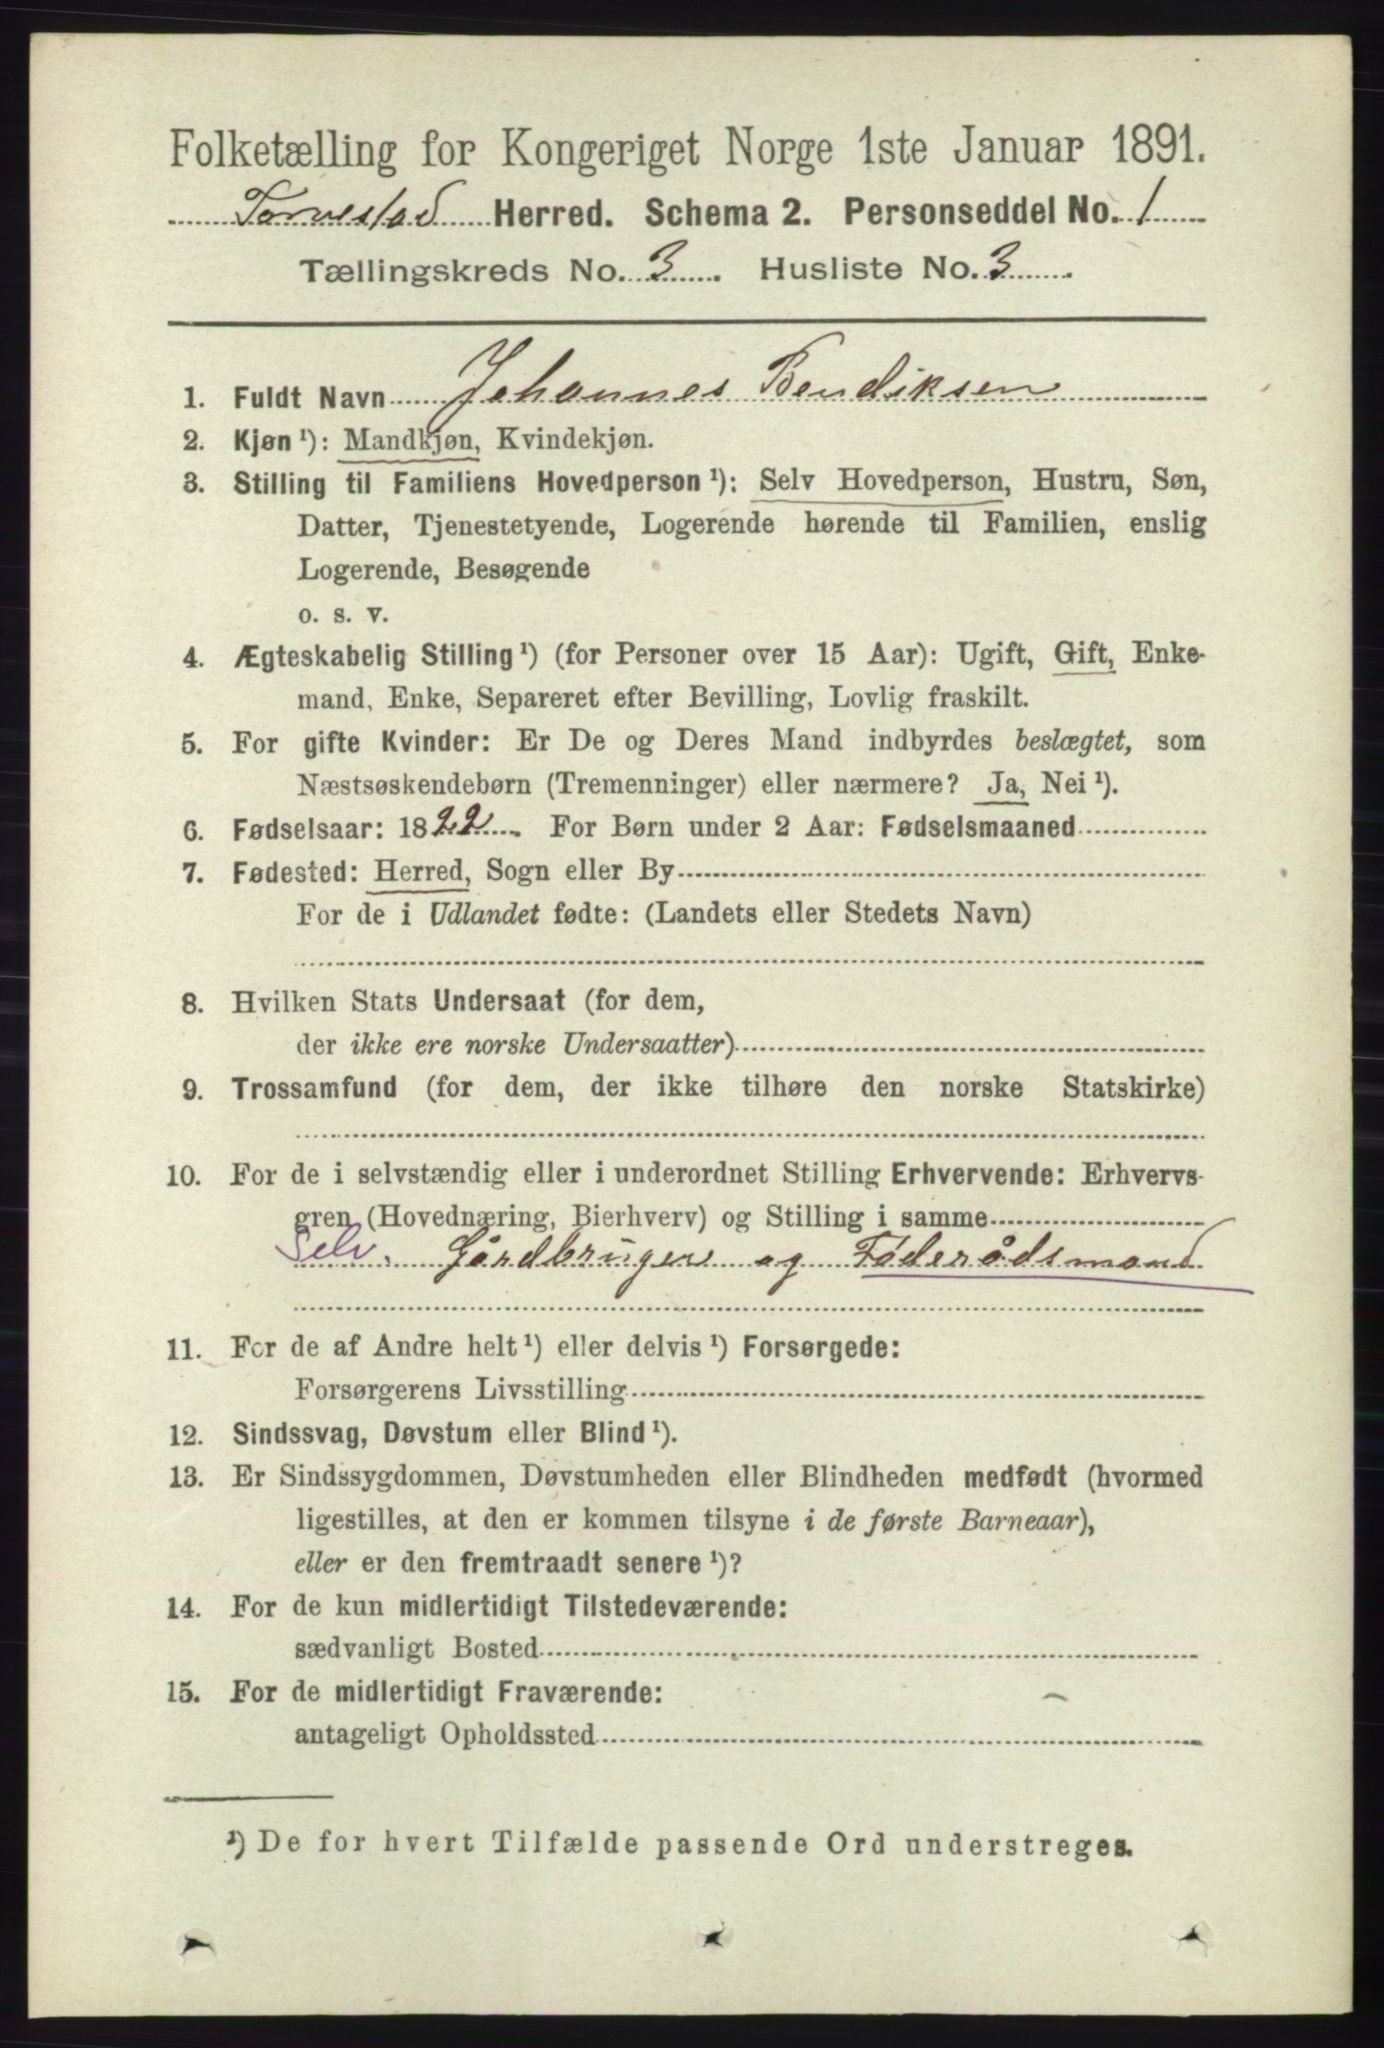 Folketælling for Kongeriget Norge 1ste Januar 1891.
Torvestad Herred. Schema 2. Personseddel No. 1
Tællingskreds No. 3. Husliste No. 3.
1. Fuldt Navn Johannes Bendiksen
2. Kjøn ¹): Mandkjøn, Kvindekjøn.
3. Stilling til Familiens Hovedperson ¹): Selv Hovedperson, Hustru, Søn,
Datter, Tjenestetyende, Logerende hørende til Familien, enslig
Logerende, Besøgende
o. s. v.
4. Ægteskabelig Stilling ¹) (for Personer over 15 Aar): Ugift, Gift, Enke-
mand, Enke, Separeret efter Bevilling, Lovlig fraskilt.
5. For gifte Kvinder: Er De og Deres Mand indbyrdes beslægtet, som
Næstsøskendebørn (Tremenninger) eller nærmere? Ja, Nei ¹).
6. Fødselsaar: 1822. For Børn under 2 Aar: Fødselsmaaned
7. Fødested: Herred, Sogn eller By
For de i Udlandet fødte: (Landets eller Stedets Navn)
8. Hvilken Stats Undersaat (for dem,
der ikke ere norske Undersaatter)
9. Trossamfund (for dem, der ikke tilhøre den norske Statskirke)
10. For de i selvstændig eller i underordnet Stilling Erhvervende: Erhvervs-
gren (Hovednæring, Bierhverv) og Stilling i samme
Selv. Gårdbruger og Føderådsmand
11. For de af Andre helt ¹) eller delvis ¹) Forsørgede:
Forsørgerens Livsstilling
12. Sindssvag, Døvstum eller Blind ¹).
13. Er Sindssygdommen, Døvstumheden eller Blindheden medfødt (hvormed
ligestilles, at den er kommen tilsyne i de første Barneaar),
eller er den fremtraadt senere ¹)?
14. For de kun midlertidigt Tilstedeværende:
sædvanligt Bosted
15. For de midlertidigt Fraværende:
antageligt Opholdssted
¹) De for hvert Tilfælde passende Ord understreges.